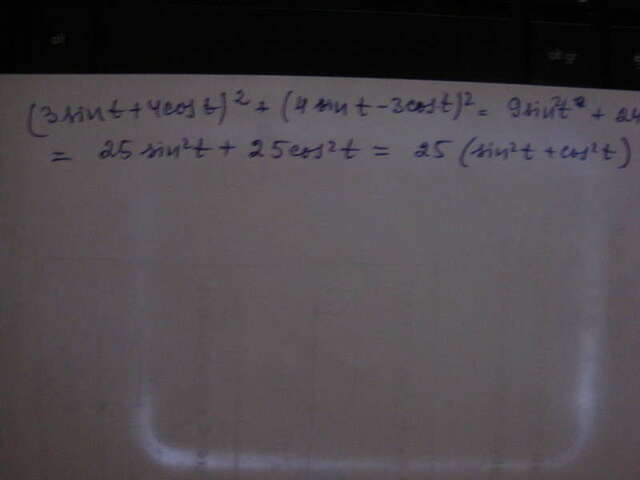 (3sint + 4cost)² + (4sint - 3cost)² = 9sin²t + 24
= 25sin²t + 25cos²t = 25(sin²t + cos²t)